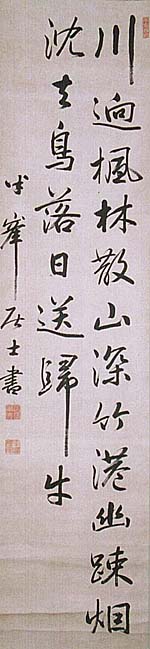 川迥楓林散山深竹港幽疎烟
沈去鳥落日送歸牛
半峯居士書